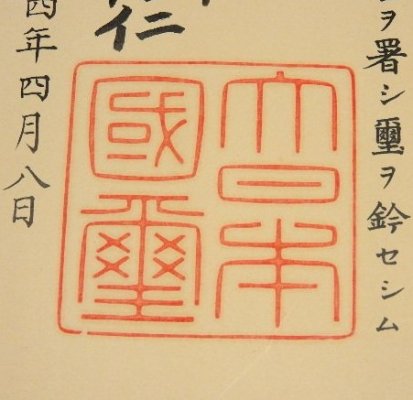 ヲ署シ璽ヲ鈐セシム
大日本
國璽
仁
四年四月八日